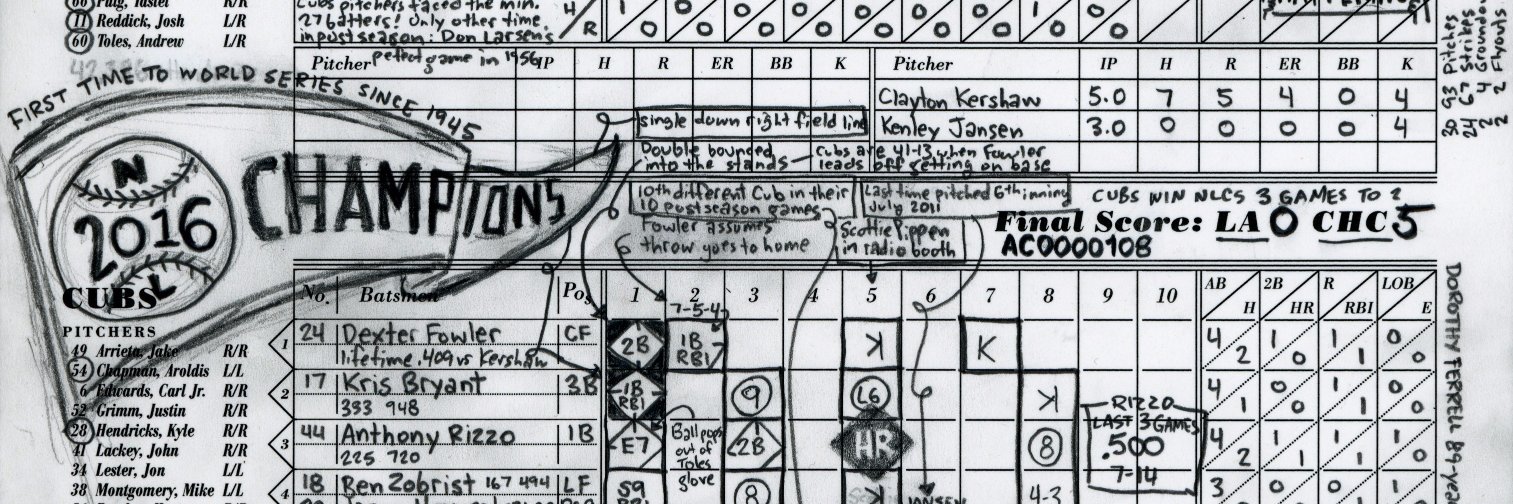 Puig, Yasiel L/R
11 Reddick, Josh L/R
60 Toles, Andrew L/R
Cubs pitchers faced the min.
27 batters! Only other time
in postseason: Don Larsen's
perfect game in 1956
H
R
Pitcher IP H R ER BB K
Pitcher IP H R ER BB K
Clayton Kershaw 5.0 7 5 4 0 4
Kenley Jansen 3.0 0 0 0 0 4
93 Pitches
67 Strikes
4 Groundouts
2 Flyouts
30
24
2
2
FIRST TIME TO WORLD SERIES SINCE 1945
N
2016
L
CHAMPIONS
single down right field line
Double bounded
into the stands
Cubs are 41-13 when Fowler
leads off getting on base
10th different Cub in their
10 postseason games
Last time pitched 6th inning
July 2011
Fowler assumes
throw goes to home
Scottie Pippen
in radio booth
CUBS WIN NLCS 3 GAMES TO 2
Final Score: LA 0 CHC 5
AC0000108
CUBS
PITCHERS
49 Arrieta, Jake R/R
54 Chapman, Aroldis L/L
6 Edwards, Carl Jr. R/R
52 Grimm, Justin R/R
28 Hendricks, Kyle R/R
41 Lackey, John R/R
34 Lester, Jon L/L
38 Montgomery, Mike L/L
No. Batsmen Pos 1 2 3 4 5 6 7 8 9 10 AB H 2B HR R RBI LOB E
7-5-4
1 24 Dexter Fowler CF 2B 1B RBI K K 4 2 1 0 1 1 0 0
lifetime .409 vs Kershaw
2 17 Kris Bryant 3B 1B RBI 9 L6 K 4 1 0 0 1 1 1 0
393 948
3 44 Anthony Rizzo 1B E7 2B HR 8 4 2 1 1 1 1 0
225 720
Ball pops
out of
Toles
glove
RIZZO
LAST 3 GAMES
.500
7-14
4 18 Ben Zobrist 167 494 LF S9 8 K 4-3 3 0 0 0
JANSEN
DOROTHY FERRELL 89-ye